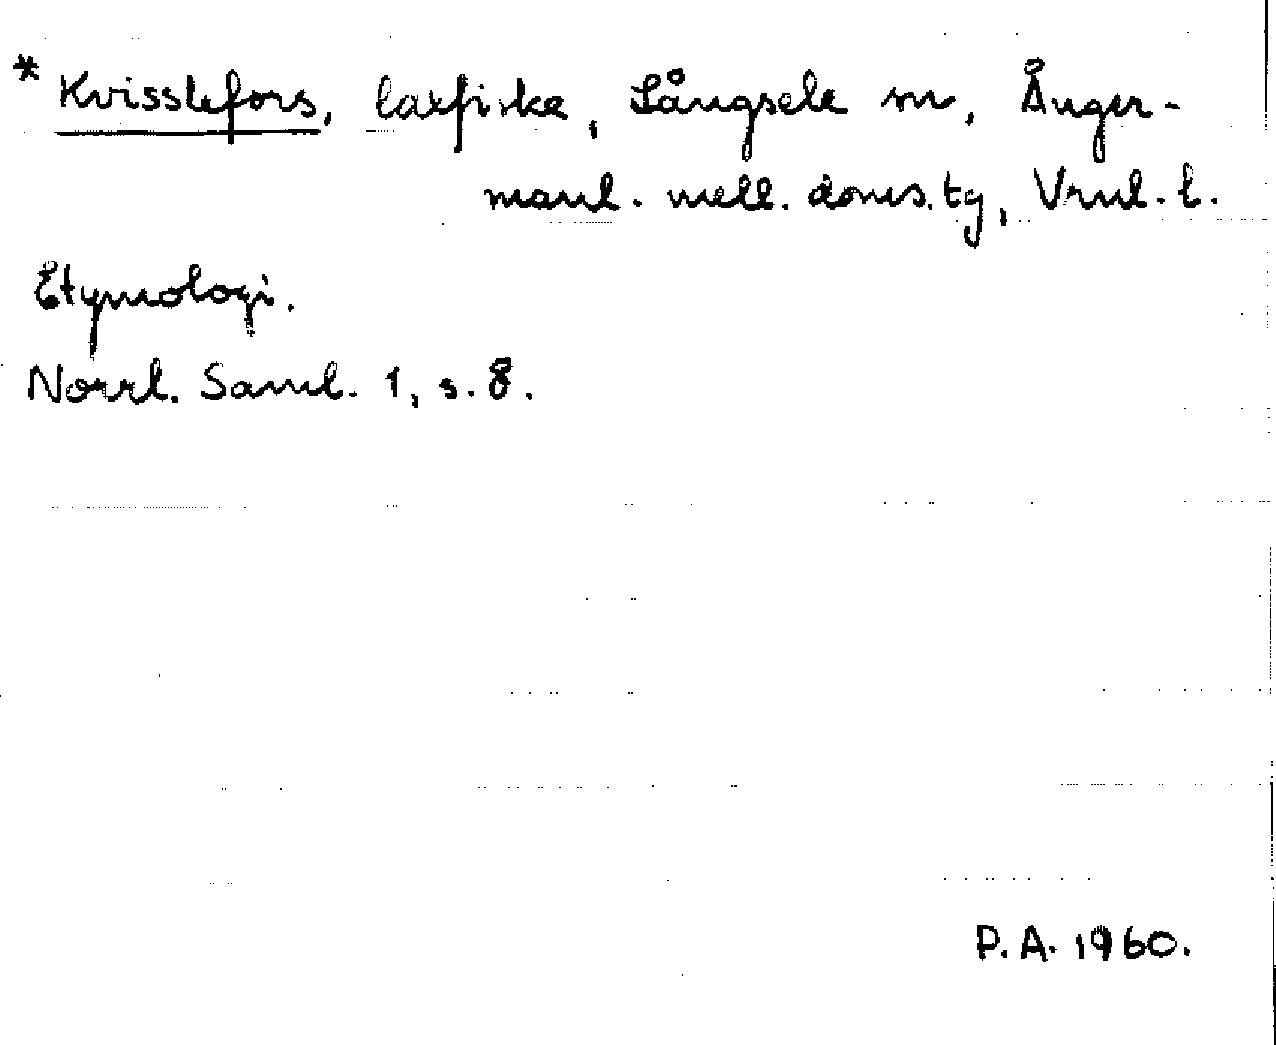 * Kvisslefors, laxfiske, Långsele sn, Ånger-
manl. mell. doms.tg, Vrnl. l.
Etymologi.
Norrl. Saml. 1, s. 8.
P. A. 1960.